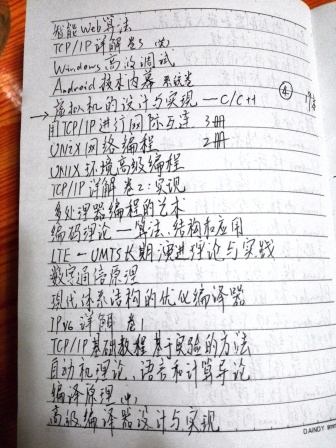 智能Web算法
TCP/IP详解 卷3
Windows高效调试
Android技术内幕 系统卷
虚拟机的设计与实现—C/C++ ④
用TCP/IP进行网际互连 3册
UNIX网络编程 2册
UNIX环境高级编程
TCP/IP详解 卷2:实现
多处理器编程的艺术
编码理论—算法、结构和应用
LTE-UMTS长期演进理论与实践
数字通信原理
现代体系结构的优化编译器
IPv6详解 卷1
TCP/IP基础教程 基于实验的方法
自动机理论、语言和计算导论
编译原理
高级编译器设计与实现
DAINDY